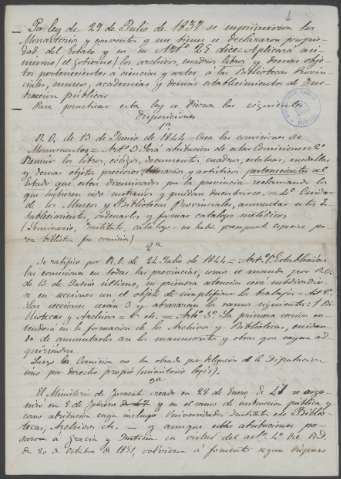 Por ley de 29 de Julio de 1837 se suprimieron los
Monasterios y conventos y sus bienes se declararon propie-
dad del Estado y en su Artº 25 dice: Aplicará asi
mismo (el gobierno) los archivos, cuadros, libros y demas obje-
tos pertenecientes a ciencias y artes a las Bibliotecas Provin-
ciales, museos, academias y demas establecimientos de Ins-
trucción pública.
Para practicar esta ley se dieron las siguientes
disposiciones
1ª
R.O. de 13 de Junio de 1844 = Crea las comisiones de
Monumentos = Art. 3. Será atribucion de estas Comisiones: 2º
Reunir los libros, códices, documentos, cuadros, estatuas, medallas
y demas objetos preciosos literarios y artisticos pertenecientes al
Estado que esten diseminados por la provincia reclamando los
que hubieren sido sustraidos y puedan descubrirse. = 4º Cuidar
de los Museos y Bibliotecas Provinciales, aumentar estos es-
tablecimientos, ordenarlos y formar catalogos metódicos
(Seminario, Instituto, catálogo - no habia presupuesto
2ª
Se ratifica por R.O. de 24 Julio de 1844 = Art. 1º Establecidas
las comisiones en todas las provincias, como se manda por R.O.
de 13 de Junio último,
en secciones con el objeto de simplificar los trabajos = Art. 2º
Las secciones serán 3 y abrazarán los ramos siguientes: 1ª Bi-
bliotecas y Archivos = 2ª etc. = Artº 3º La primera sección en-
tenderá en la formacion de los Archivos y Bibliotecas, cuidan-
do de aumentarlos con los manuscritos y obras que vayan ad-
quiriendose.
Luego la Comision no ha obrado por delegacion de la Diputacion
sino por derecho propio (ministerio legis).
3ª
El Ministerio de Fomento creado en 28 de Enero de 47 se orga-
nizó en 5 de Febrero y en el ramo de instruccion pública y
como atribucion suya incluyó Universidades, Institutos etc Biblio-
tecas, Archivos etc. — y aunque estas atribuciones pa-
saron a Gracia y Justicia en virtud del artº 4º del R.D.
de 20 de Octubre de 1851, volvieron á fomento segun dispone